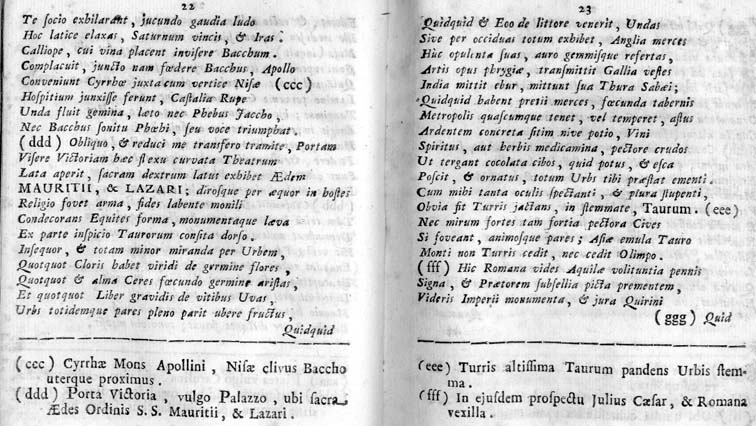 22
Te socio exhilarant, jucundo gaudia ludo
Hoc latice elaxas, Saturnum vincis, & Iras.
Calliope, cui vina placent invisere Bacchum.
Complacuit, juncto nam fœdere Bacchus, Apollo
Conveniunt Cyrrhæ juxta cum vertice Nisæ (ccc)
Hospitium junxisse ferunt, Castalia Rupe
Unda fluit gemina, læto nec Phebus Jaccho,
Nec Bacchus sonitu Phœbi, seu voce triumphat.
(ddd) Obliquo, & reduci me transfero tramite, Portam
Visere Victoriam hæc flexu curvata Theatrum
Lata aperit, sacram dextrum latus exhibet Ædem
MAURITII, & LAZARI; dirosque per æquor in hostes
Religio fovet arma, fides labente monili
Condecorans Equites forma, monumentaque læva
Ex parte inspicio Taurorum consita dorso.
Insequor, & totam minor miranda per Urbem,
Quotquot Cloris habet viridi de germine flores,
Quotquot & alma Ceres fœcundo germine aristas,
Et quotquot Liber gravidis de vitibus Uvas,
Urbs totidemque pares pleno parit ubere fructus,
Quidquid
(ccc) Cyrrhæ Mons Apollini, Nisæ clivus Baccho
uterque proximus.
(ddd) Porta Victoria, vulgo Palazzo, ubi sacra
Ædes Ordinis S. S. Mauritii, & Lazari.
23
Quidquid & Eoo de littore venerit, Undas
Sive per occiduas totum exhibet, Anglia merces
Hùc opulenta suas, auro gemmisque refertas,
Artis opus phrygiæ, transmittit Gallia vestes
India mittit ebur, mittunt sua Thura Sabæi;
Quidquid habent pretii merces, fœcunda tabernis
Metropolis quascumque tenet, vel temperet, æstus
Ardentem concreta sitim nive potio, Vini
Spiritus, aut herbis medicamina, pectore crudos
Ut tergant cocolata cibos, quid potus, & esca
Poscit, & ornatus, totum Urbs tibi præstat ementi.
Cum mihi tanta oculis spectanti, & plura stupenti,
Obvia fit Turris jactans, in stemmate, Taurum. (eee)
Nec mirum fortes tam fortia pectora Cives
Si foveant, animosque pares; Asiæ emula Tauro
Monti non Turris cedit, nec cedit Olimpo.
(fff) Hic Romana vides Aquilæ volituntia pennis
Signa, & Prætorem subsellia picta prementem,
Videris Imperii monumenta, & jura Quirini
(ggg) Quid
(eee) Turris altissima Taurum pandens Urbis stem-
ma.
(fff) In ejusdem prospectu Julius Cæsar, & Romana
vexilla.